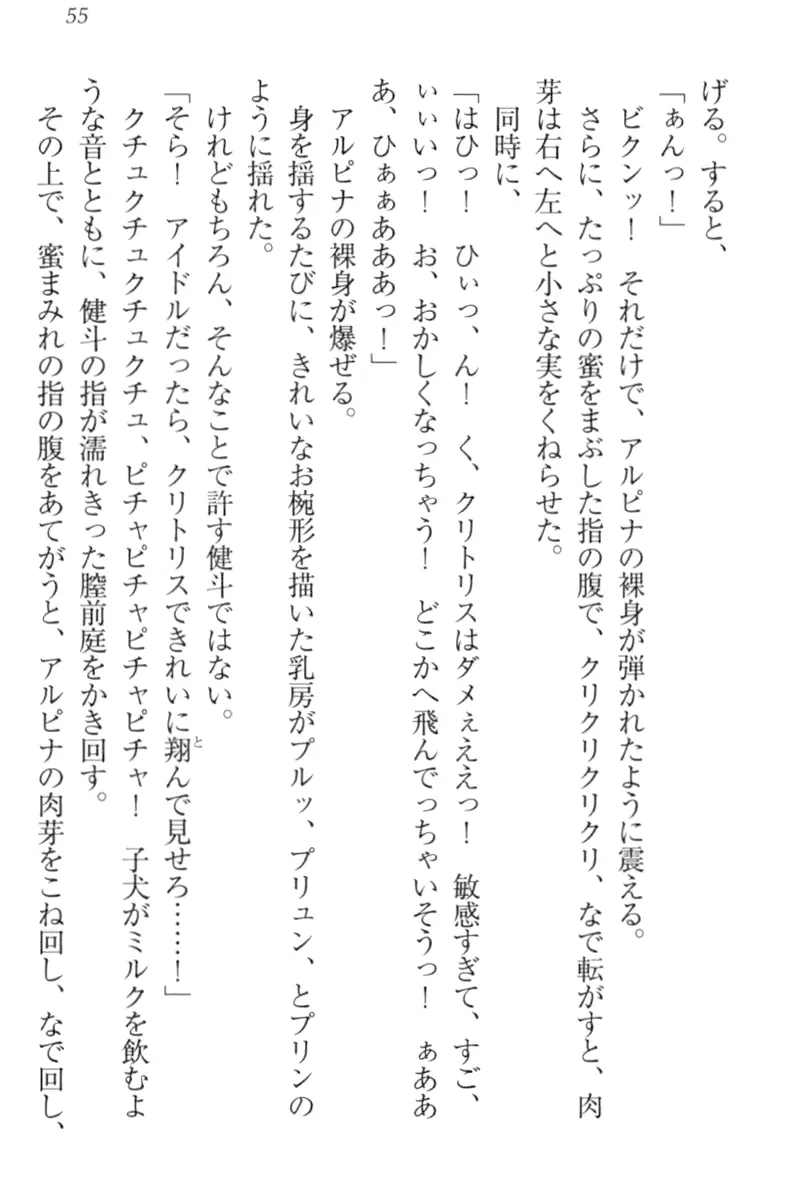 55
げる。すると、
「ぁんっ！」
ビクンッ！　それだけで、アルピナの裸身が弾かれたように震える。
さらに、たっぷりの蜜をまぶした指の腹で、クリクリクリクリ、なで転がすと、肉
芽は右へ左へと小さな実をくねらせた。
同時に、
「はひっ！　ひぃっ、ん！　く、クリトリスはダメぇええっ！　敏感すぎて、すご、
いぃいっ！　お、おかしくなっちゃう！　どこかへ飛んでっちゃいそうっ！　ぁああ
あ、ひぁぁあああっ！」
アルピナの裸身が爆ぜる。
身を揺するたびに、きれいなお椀形を描いた乳房がプルッ、プリュン、とプリンの
ように揺れた。
けれどもちろん、そんなことで許す健斗ではない。
「そら！　アイドルだったら、クリトリスできれいに翔んで見せろ……！」
クチュクチュクチュクチュ、ピチャピチャピチャピチャ！　子犬がミルクを飲むよ
うな音とともに、健斗の指が濡れきった膣前庭をかき回す。
その上で、蜜まみれの指の腹をあてがうと、アルピナの肉芽をこね回し、なで回し、